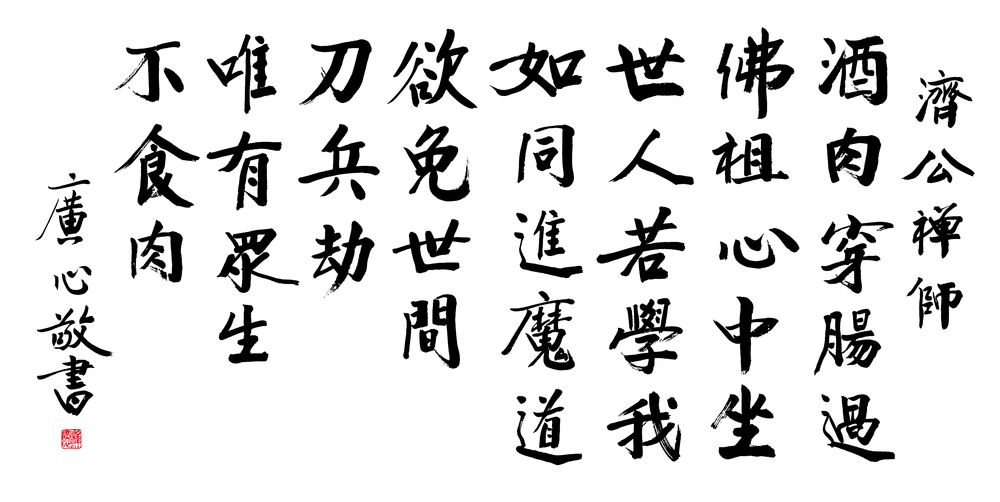 濟公禅師
酒肉穿腸過
佛祖心中坐
世人若學我
如同進魔道
欲免世間
刀兵劫
唯有眾生
不食肉
廣心敬書